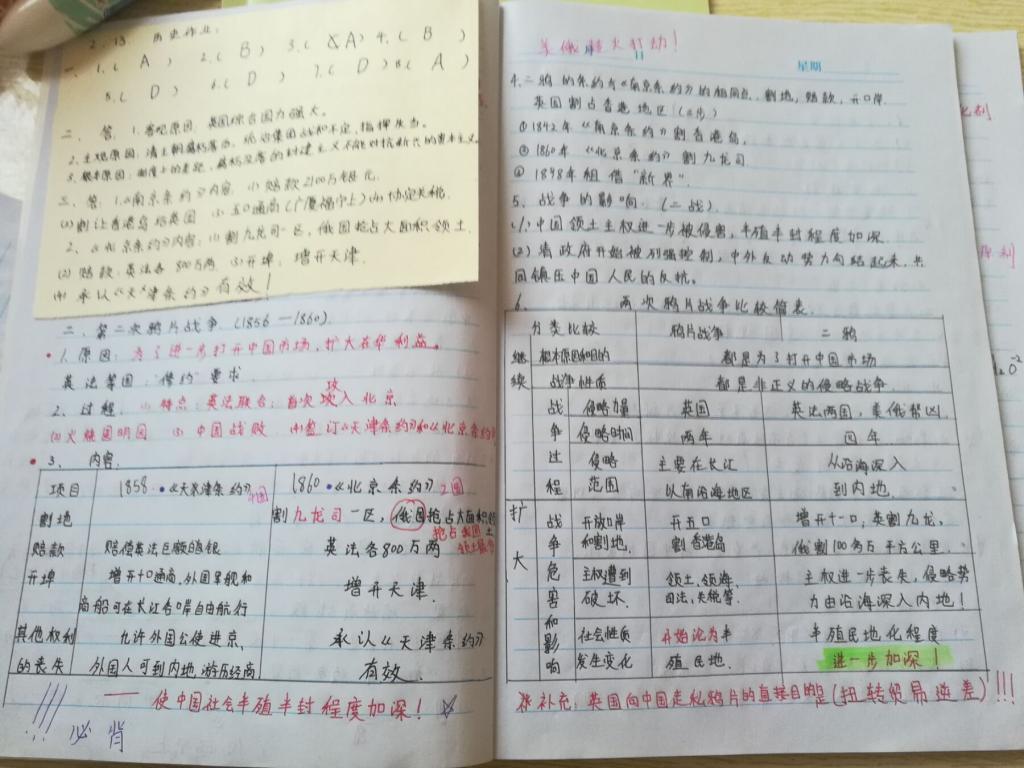 2.13. 历史作业:
一、1.( A ) 2.( B ) 3.( A) 4.( B )
5.( D ) 6.( D ) 7.( D ) 8.( A )
二、答: 1.客观原因: 英国综合国力强大。
2.主观原因: 清王朝腐朽落后, 统治集团战和不定, 指挥失当。
3.根本原因: 制度上的差距, 腐朽没落的封建主义不能对抗新兴的资本主义。
三、答: 1.《南京条约》内容: (1)赔款2100万银元
(2)割让香港岛给英国 (3)五口通商(广厦福宁上) (4)协定关税
2、《北京条约》内容: (1)割九龙司一区, 俄国抢占大面积领土
(2)赔款:英法各800万两 (3)开埠: 增开天津.
(4)承认《天津条约》有效!
二、第二次鸦片战争. (1856—1860)
1.原因: 为了进一步打开中国市场,扩大在华利益。
英法等国"修约"要求
攻
2、过程: (1)特点:英法联合;首次入北京
(2)火烧圆明园 (3)中国战败 (4)签订《天津条约》和《北京条约》
3、内容:
项目 1858·《天津条约》 1860·《北京条约》2国
割地 割九龙司一区, 俄国抢占大面积领土
赔款 赔偿英法巨额白银 英法各800万两
开埠 增开十口通商,外国军舰和商船可在长江各口岸自由航行 增开天津.
其他权利的丧失 允许外国公使进京, 外国人可到内地游历经商 承认《天津条约》有效.
——使中国社会半殖半封程度加深! ☆
!!! 必背
星期
4.二鸦的条约与《南京条约》的相同点: 割地, 赔款, 开口岸
英国割占香港地区(三步)
①1842年《南京条约》割香港岛,
②1860年《北京条约》割九龙司
③1898年租借"新界".
5、战争的影响: (二战).
(1)中国领土主权进一步被侵害,半殖半封程度加深
(2)清政府开始被列强控制,中外反动势力勾结起来,共
同镇压中国人民的反抗。
6. 两次鸦片战争比较简表.
分类比较 鸦片战争 二鸦
继续 根本原因和目的 都是为了打开中国市场
战争性质 都是非正义的侵略战争
战争过程 侵略力量 英国 英法两国, 美俄帮凶
侵略时间 两年 四年
侵略范围 主要在长江以南沿海地区 从沿海深入到内地.
扩大 战争危害和影响 开放口岸和割地. 开五口割香港岛 增开十一口,英割九龙, 俄割100多万平方公里.
主权遭到破坏. 领土、领海、司法、关税等. 主权进一步丧失,侵略势力由沿海深入内地!
社会性质发生变化 开始沦为半殖民地. 半殖民地化程度进一步加深!
补充: 英国向中国走私鸦片的直接目的是(扭转贸易逆差)!!!